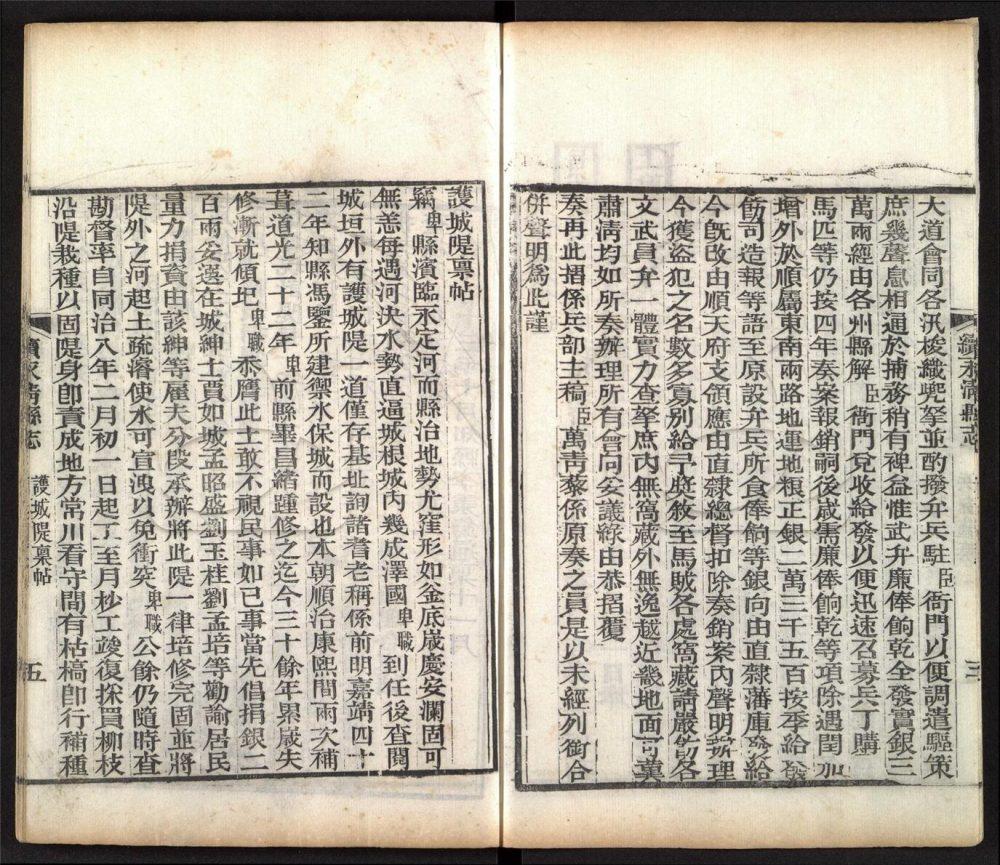 大道會同各汛梭織兜拏並酌撥弁兵駐臣衙門以便調遣驅策
庶幾聲息相通於捕務稍有裨益惟武弁廉俸餉乾全發實銀三
萬兩經由各州縣解臣衙門兌收給發以便迅速召募兵丁購
馬匹等仍按四年奏案報銷嗣後咸需廉俸餉乾等項除遇閏加
增外於順屬東南兩路地運地粮正銀二萬三千五百按季給發
飭司造報等語至原設弁兵所食俸餉等銀向由直隸藩庫發給
今旣改由順天府支領應由直隸總督扣除奏銷案內聲明辦理
今獲盜犯之名數多寡別給予庭敘至馬賊各處窩藏請嚴飭各
文武員弁一體實力查拏庶內無窩藏外無逸越近畿地面可冀
肅清均如所奏辦理所有會同妥議緣由恭摺覆
奏再此摺係兵部主稿臣萬青藜係原奏之員是以未經列銜合
併聲明爲此謹
續永清縣志
護城隄稟帖
竊卑縣濱臨永定河而縣治地勢尤窪形如釜底歲慶安瀾固可
無恙每遇河決水勢直逼城根城內幾成澤國卑職到任後查閱
城垣外有護城隄一道僅存基址詢諸耆老稱係前明嘉靖四十
二年知縣馮鑒所建禦水保城而設也本朝順治康熙間兩次補
葺道光二十二年卑前縣畢昌緒踵修之迄今三十餘年累歲失
修漸就傾圯卑職忝膺此土敢不視民事如己事當先倡捐銀二
百兩妥選在城紳士賈如城孟昭盛劉玉柱劉孟培等勸諭居民
量力捐資由該紳等雇夫分段承辦將此隄一律培修完固並將
隄外之河起土疏濬使水可宣洩以免衝突卑職公餘仍隨時查
勘督率自同治八年二月初一日起丁至月杪工竣復採買柳枝
沿隄栽種以固隄身卽責成地方常川看守間有枯槁卽行補種
續永清縣志
護城隄稟帖
五